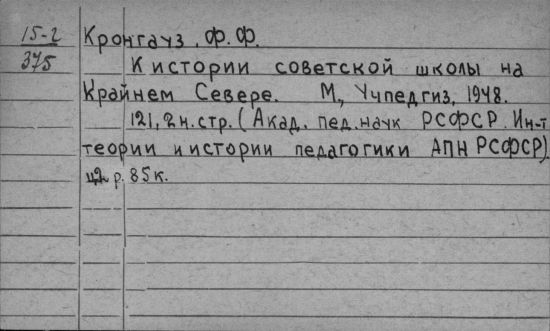 15-2 Кронгауз, Ф.Ф.
375 К истории советской школы на
Крайнем Севере. М., Учпедгиз, 1948.
121, 2 н. стр. (Акад. пед. наук РСФСР. Ин-т
теории и истории педагогики АПН РСФСР)
р. 85 к.